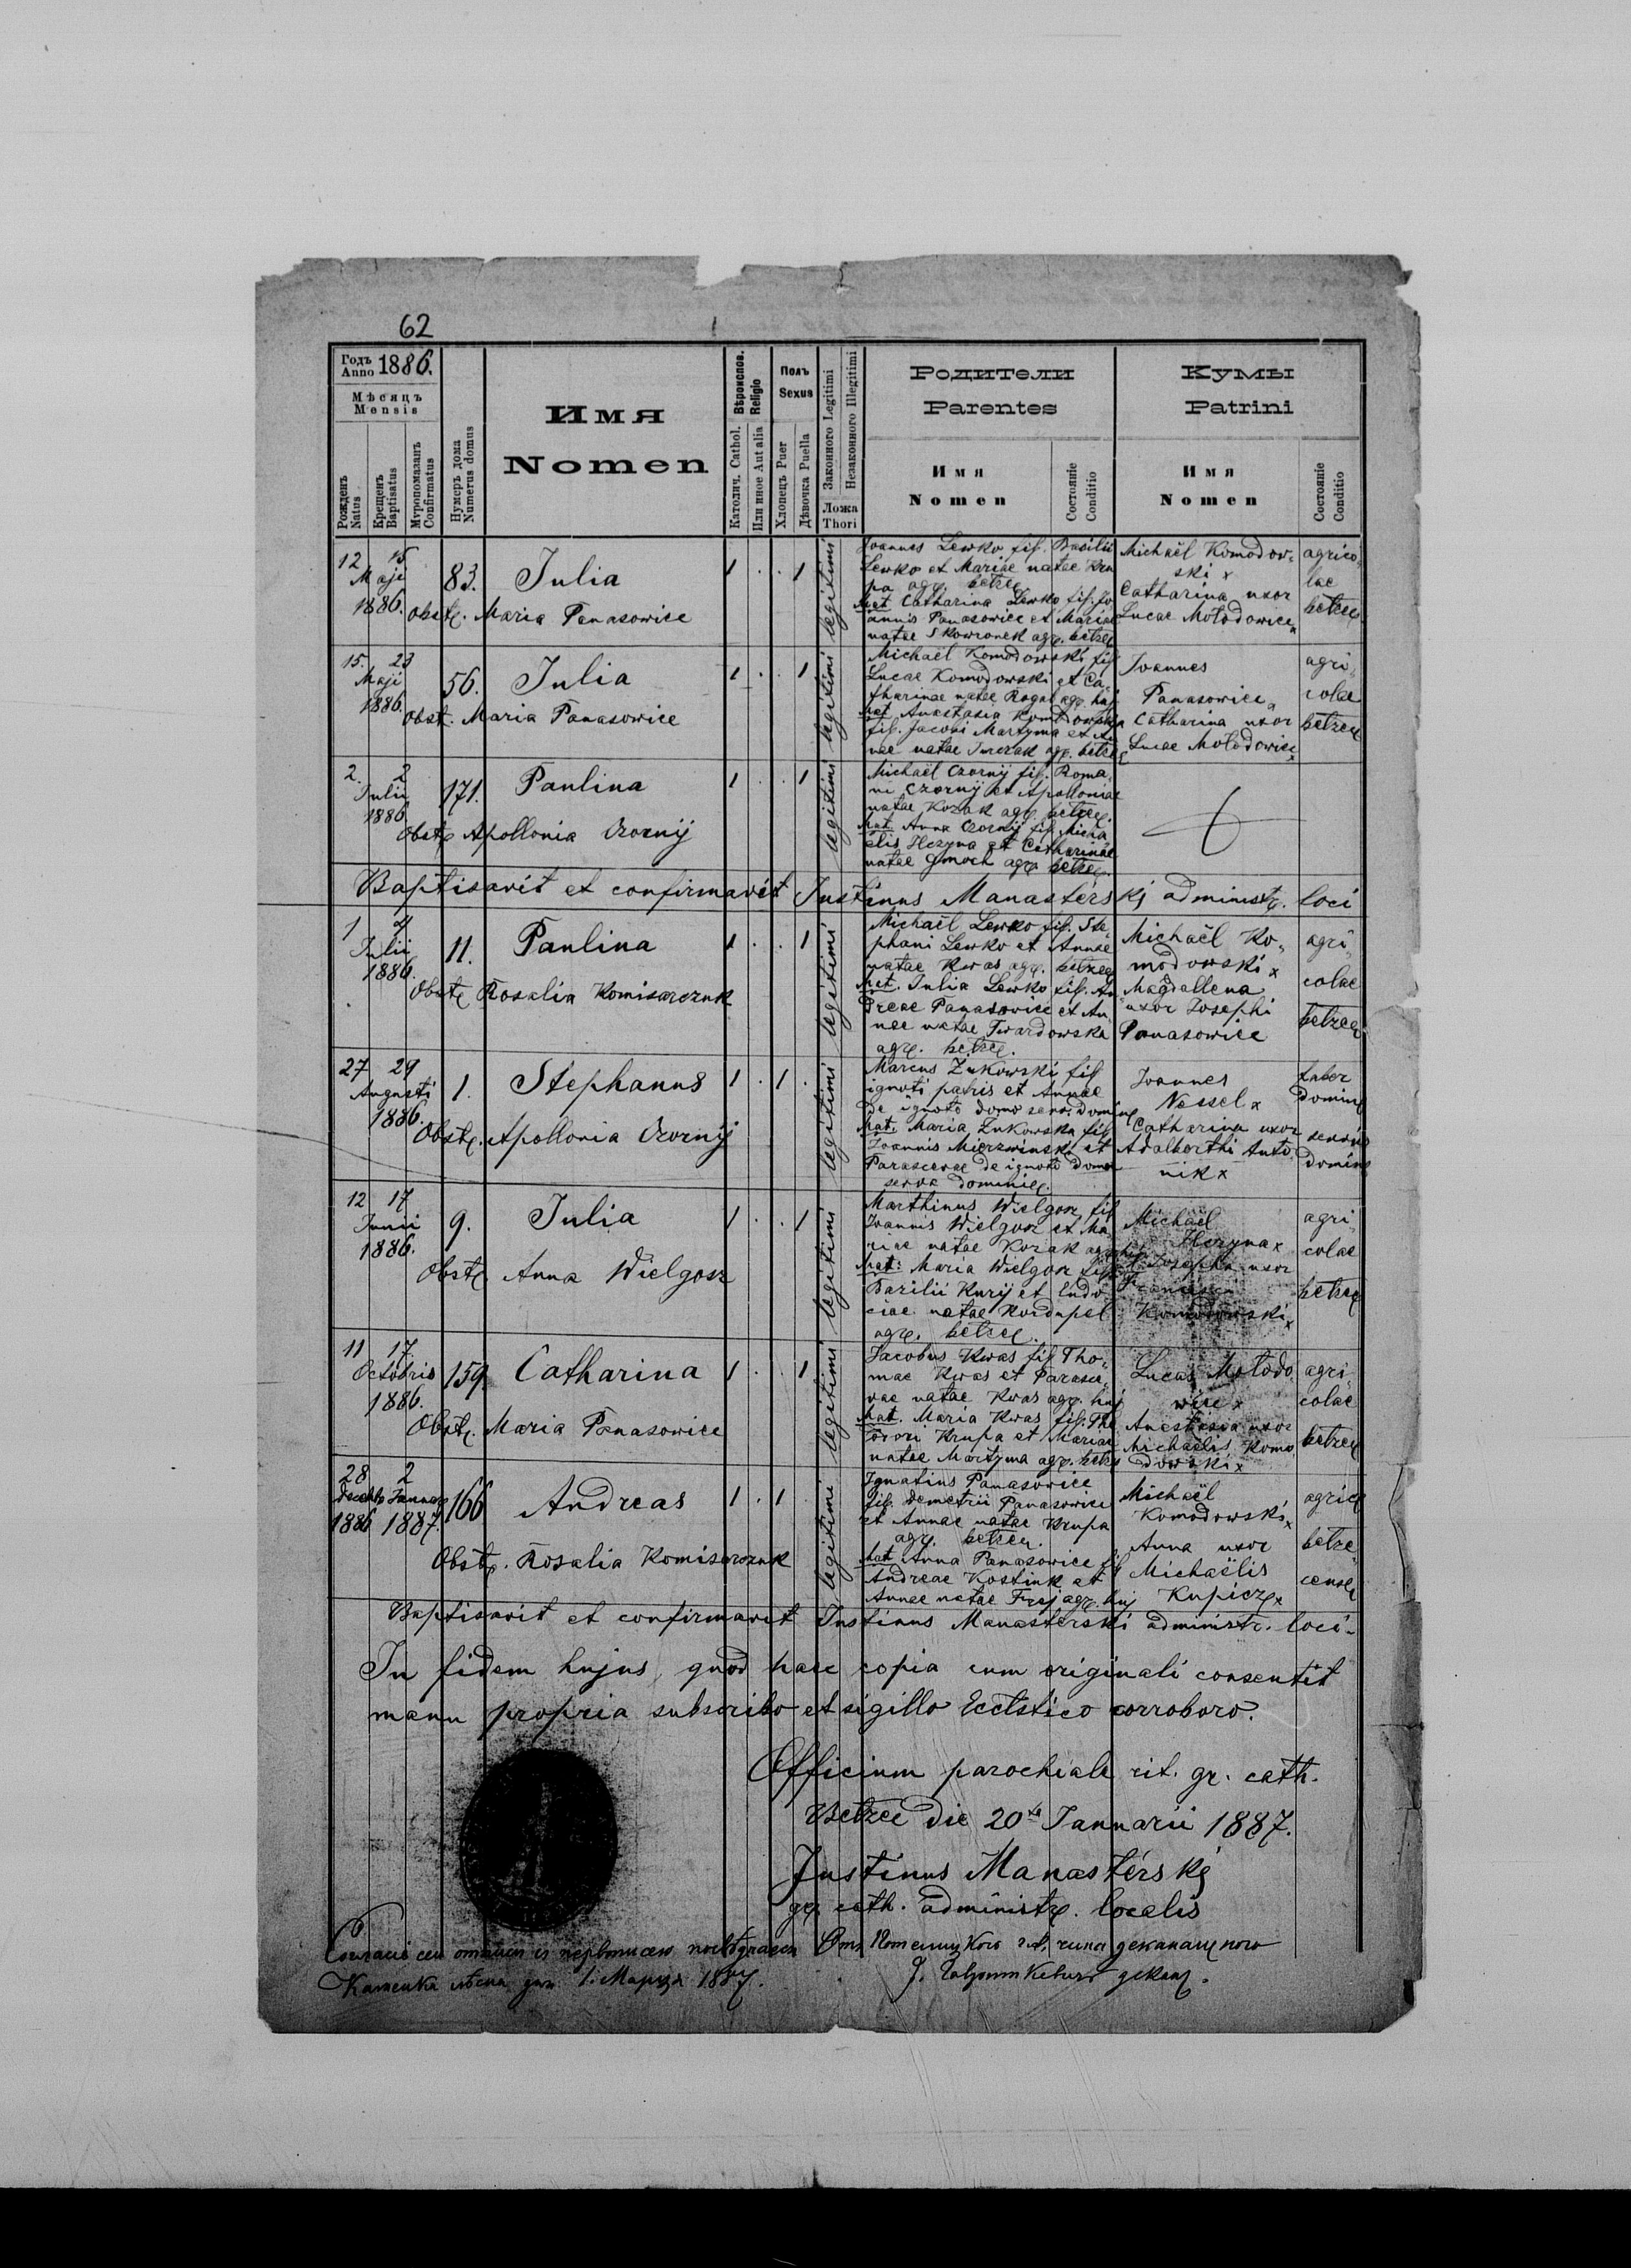 62
Годъ Anno 1886.
Мѣсяцъ
Mensis
Рожденъ Natus
Крещенъ Baptisatus
Мѵропомазанъ Confirmatus
Нумеръ дома Numerus domus
Имя
Nomen
Вѣроиспов. Religio
Католич. Cathol.
Или иное Aut alia
Полъ
Sexus
Хлопецъ Puer
Дѣвочка Puella
Законного Legitimi
Незаконного Illegitimi
Ложа
Thori
Родители
Parentes
Имя
Nomen
Состояніе Conditio
Кумы
Patrini
Имя
Nomen
Состояніе Conditio
12 15
Maji
1886.
83.
Julia
Obst. Maria Panasowice
1 . . 1
legitimi
Joannes Lewko fil. Basilii
Lewko et Mariae natae Kru
pa agr. betzec
Mat Catharina Lewko fil. Jo
annis Panasowice et Mariae
natae Skowronek agr. betzec
Michaël Komodow-
ski x
Catharina uxor
Lucae Mołodowice x
agrico-
lae
betzec
15. 23
Maji
1886.
56.
Julia
Obst. Maria Panasowice
1 . . 1
legitimi
Michaël Komodowski fil
Lucae Komodowski et Ca-
tharinae natae Rogal agr. huj
Mat Anastasia Komodowska
fil. Jacobi Martyma et An
nae natae Jurczak agr. betzec
Joannes
Panasowice x
Catharina uxor
Lucae Mołodowice x
agri-
colae
betzec
2. 2
Julii
1886
171.
Paulina
Obst. Apollonia Czornij
1 . . 1
legitimi
Michaël Czornij fil. Roma-
ni Czornij et Apolloniae
natae Kozak agr. betzec.
Mat. Anna Czornij fil. Micha
ëlis Heryna et Catharinae
natae Gmoch agr. betzec.
Baptisavit et confirmavit Justinus Manastérskj administr. loci
1 4
Julii
1886.
11.
Paulina
Obst. Rosalia Komisarczuk
1 . . 1
legitimi
Michaël Lewko fil. Ste
phani Lewko et Annae
natae Kwas agr. betzec
Mat. Julia Lewko fil. An
dreae Panasowice et An-
nae natae Twardowska
agr. betzec.
Michaël Ko-
modowski x
Magdallena
uxor Josephi
Panasowice
agri-
colae
betzec
27 29
Augusti
1886.
1.
Stephanus
Obst. Apollonia Czornij
1 . 1 .
legitimi
Marcus Żukowski fil
ignoti patris et Annae
de ignoto domo serv. domin
Mat. Maria Żukowska fil
Joannis Mierzwinski et
Parascevae de ignoto domo
serva dominic.
Joannes
Nessel x
Catharina uxor
Adalberthi Anto
nik x
faber
domin
servus
domin
12 17
Junii
1886.
9.
Julia
Obst. Anna Wielgosz
1 . . 1
legitimi
Marthinus Wielgosz fil
Joannis Wielgosz et Ma-
riae natae Kozak agr. huj.
Mat: Maria Wielgosz fil
Basilii Kurij et Eudo
ciae natae Kordupel
agr. betzec.
Michaël
Heryna x
Josepha uxor
Francisci
Komodowski x
agri-
colae
betzec
11 17
Octobris
1886.
159.
Catharina
Obst. Maria Panasowice
1 . . 1
legitimi
Jacobus Kwas fil Tho-
mae Kwas et Parasce-
vae natae Kwas agr. huj
Mat. Maria Kwas fil. The
odori Krupa et Mariae
natae Martyma agr. betzec
Lucas Mołodo
wice x
Anastasia uxor
Michaëlis Komo
dowski x
agri-
colae
betzec
28 2
Decebr Januar
1886 1887.
166
Andreas
Obst. Rosalia Komisarczuk
1 . 1
legitimi
Ignatius Panasowice
fil. Demetrii Panasowice
et Annae natae Krupa
agr. betzec.
Mat Anna Panasowice fil
Andreae Kostiuk et
Annae natae Frej agr. huj
Michaël
Komodowski x
Anna uxor
Michaëlis
Kupicz x
agric
betze
cense
Baptisavit et confirmavit Justinus Manastérski administr. loci.
In fidem hujus, quod haec copia cum originali consentit
manu propria subscribo et sigillo Ecclstico corroboro.
Officium parochiale rit. gr. cath.
Betzec die 20ta Januarii 1887.
Justinus Manastérskj
gr. cath. administr. localis
1. Марця 1887.